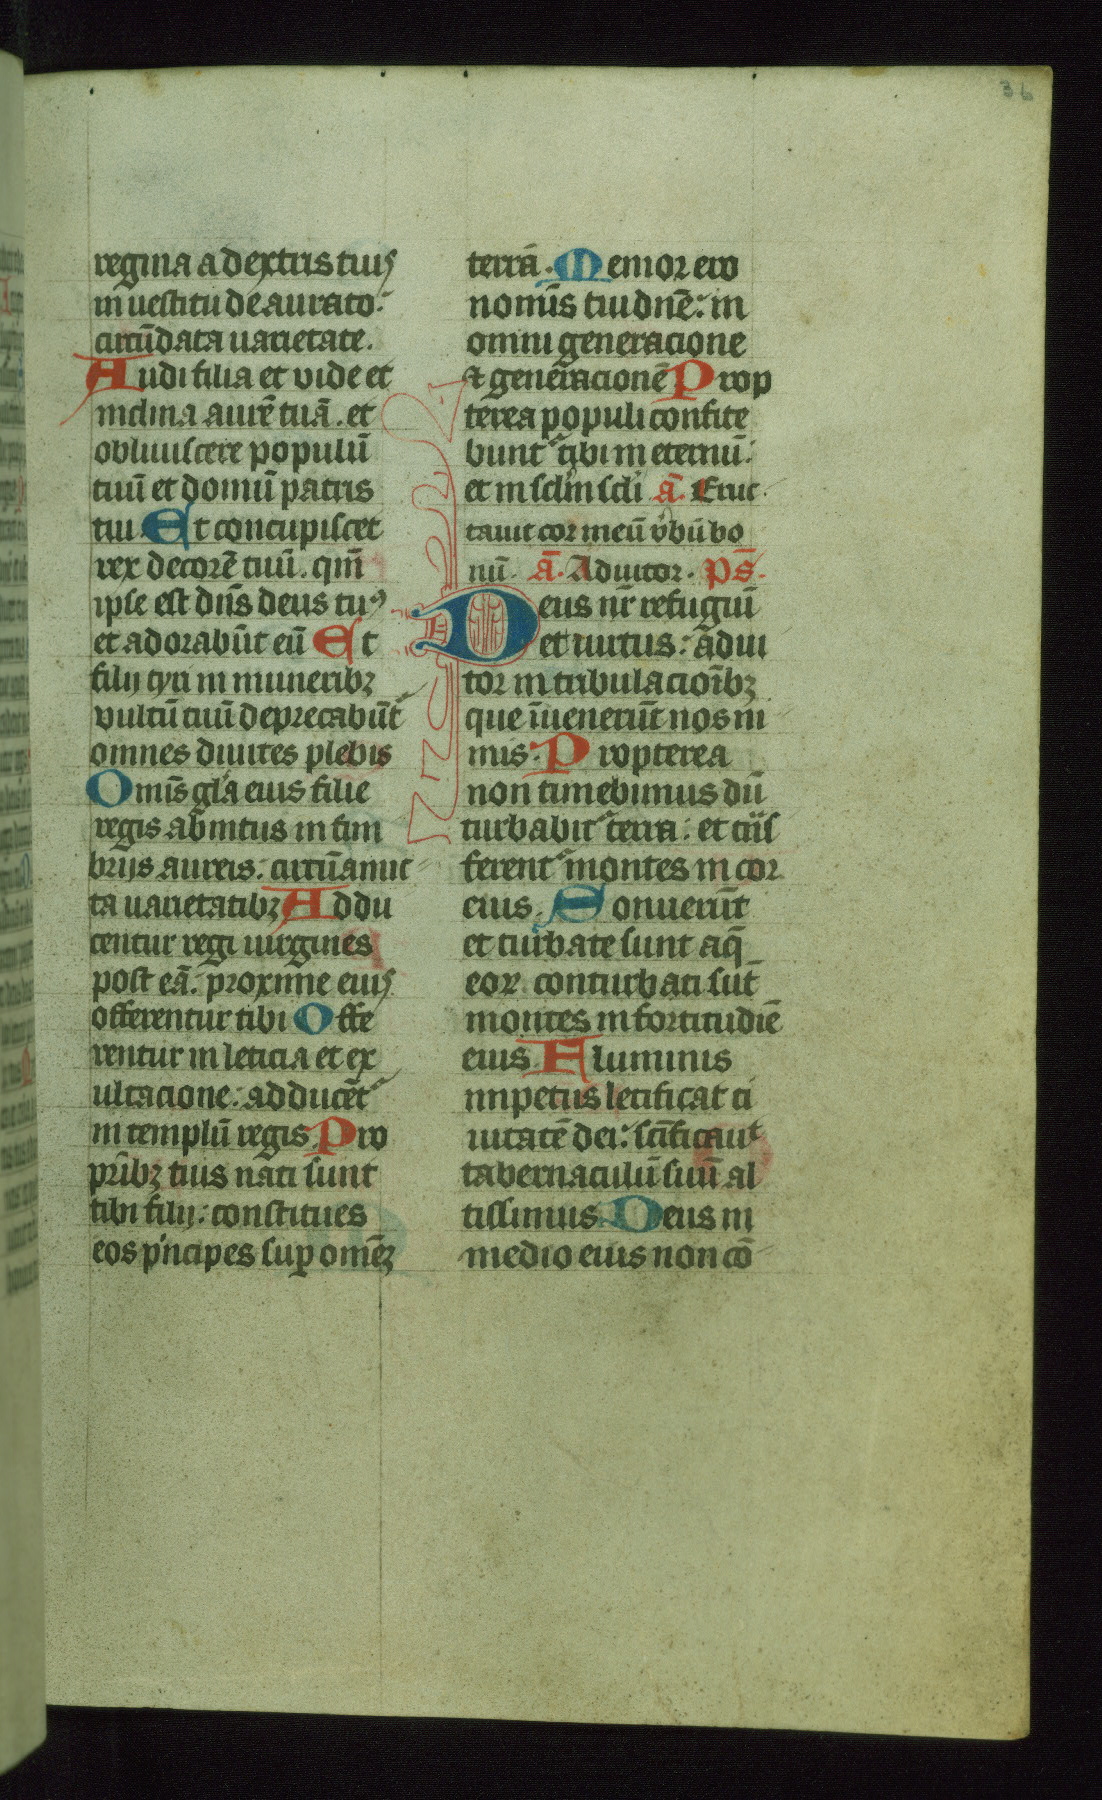 36
regina a dextris tuis
in uestitu deaurato:
circūdata uarietate.
Audi filia et vide et
inclina aurē tuā. et
obliuiscere populū
tuū et domū patris
tui Et concupiscet
rex decorē tuū. qm̄
ipse est dn̄s deus tuꝰ
et adorabūt eū Et
filij tyri in muneribꝫ
vultū tuū deprecabūt᷑
omnes diuites plebis
Omīs gl̄a eius filie
regis ab intus in fim
brijs aureis: circūamic
ta uarietatibꝫ Addu
centur regi uirgines
post eā: proxime eius
offerentur tibi Offe
rentur in leticia et ex
ultacione: adducēt᷑
in templū regis Pro
pr̄ibꝫ tuis nati sunt
tibi filij: constitues
eos pͥncipes suꝑ om̄eꝫ
terrā. Memor ero
nomīs tui dn̄e: in
omni generacione
⁊ generacionē Prop
terea populi confite
bunt᷑ tibi in eternū:
et in sclm̄ scli ā. Eruc
tauit cor meū ỽbū bo
nū. ā. Adiutor. Ps̄.
Deus nr̄ refugiū
et uirtus: adiu
tor in tribulacioībꝫ
que īuenerūt nos ni
mis. Propterea
non timebimus dū
turbabit᷑ terra: et trās
ferent᷑ montes in cor
eius. Sonuerūt
et turbate sunt aq̄
eoꝝ conturbati sūt
montes in fortitudīe
eius Fluminis
impetus letificat ci
uitatē dei: scīficauͭ
tabernaculū suū al
tissimus Deus in
medio eius non cō